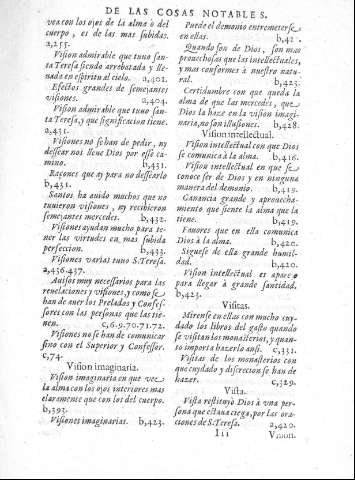 DE LAS COSAS NOTABLES.
vea con los ojos de la alma ò del
cuerpo, es de las mas subidas.
a,255.
Vision admirable que tuuo san-
ta Teresa siendo arrobatada y lle-
uada en espiritu al cielo. a,402.
Efectos grandes de semejantes
visiones. a,404.
Vision admirable que tuuo san-
ta Teresa, y que significacion tiene.
a,431.
Visiones no se han de pedir, ny
dessear nos lleue Dios por esse ca-
mino. b,431.
Raçones que ay para no dessearlo
b,431.
Santos ha auido muchos que no
tuuieron visiones, ny recibieron
semejantes mercedes. b,432.
Visiones ayudan mucho para te-
ner las virtudes en mas subida
perfeccion. b,433.
Visiones varias tuuo S. Teresa.
a,436.437.
Auisos muy necessarios para las
reuelaciones y visiones, y como se
han de auer los Prelados y Confes-
sores con las personas que las tie-
nen. c,6.9.70.71.72.
Visiones no se han de comunicar
sino con el Superior y Confessor.
c,74.
Vision imaginaria.
Vision imaginaria en que vee
la alma con los ojos interiores mas
claramente que con los del cuerpo.
b,393.
Visiones imaginarias. b,423.
Puede el demonio entremeterse
en ellas. b,42
Quando son de Dios, son mas
prouechosas que las intellectuales,
y mas conformes à nuestro natu-
ral. b,423.
Certidumbre con que queda la
alma de que las mercedes, que
Dios la haze en la vision imagi-
naria, no son illusiones. b,428.
Vision intellectual.
Vision intellectual con que Dios
se comunica à la alma. b,416.
Vision intellectual en que se
conoce ser de Dios y en ninguna
manera del demonio. b,419.
Ganancia grande y aprouecha-
miento que siente la alma que la
tiene. b,419.
Fauores que en ella comunica
Dios à la alma. b,420.
Siguese de ella grande humil-
dad. b,420.
Vision intellectual es aparejo
para llegar à grande santidad.
b,423.
Visitas.
Mirense en ellas con mucho cuy-
dado los libros del gasto quando
se visitan los monasterios, y quan-
to importa hazerlo ansi. c,331.
Visitas de los monasterios con
que cuydado y discrecion se han de
hazer. c,329.
Vista.
Vista restituyò Dios à vna per-
sona que estaua ciega, por las ora-
ciones de S. Teresa. a,420.
Iii Vision.